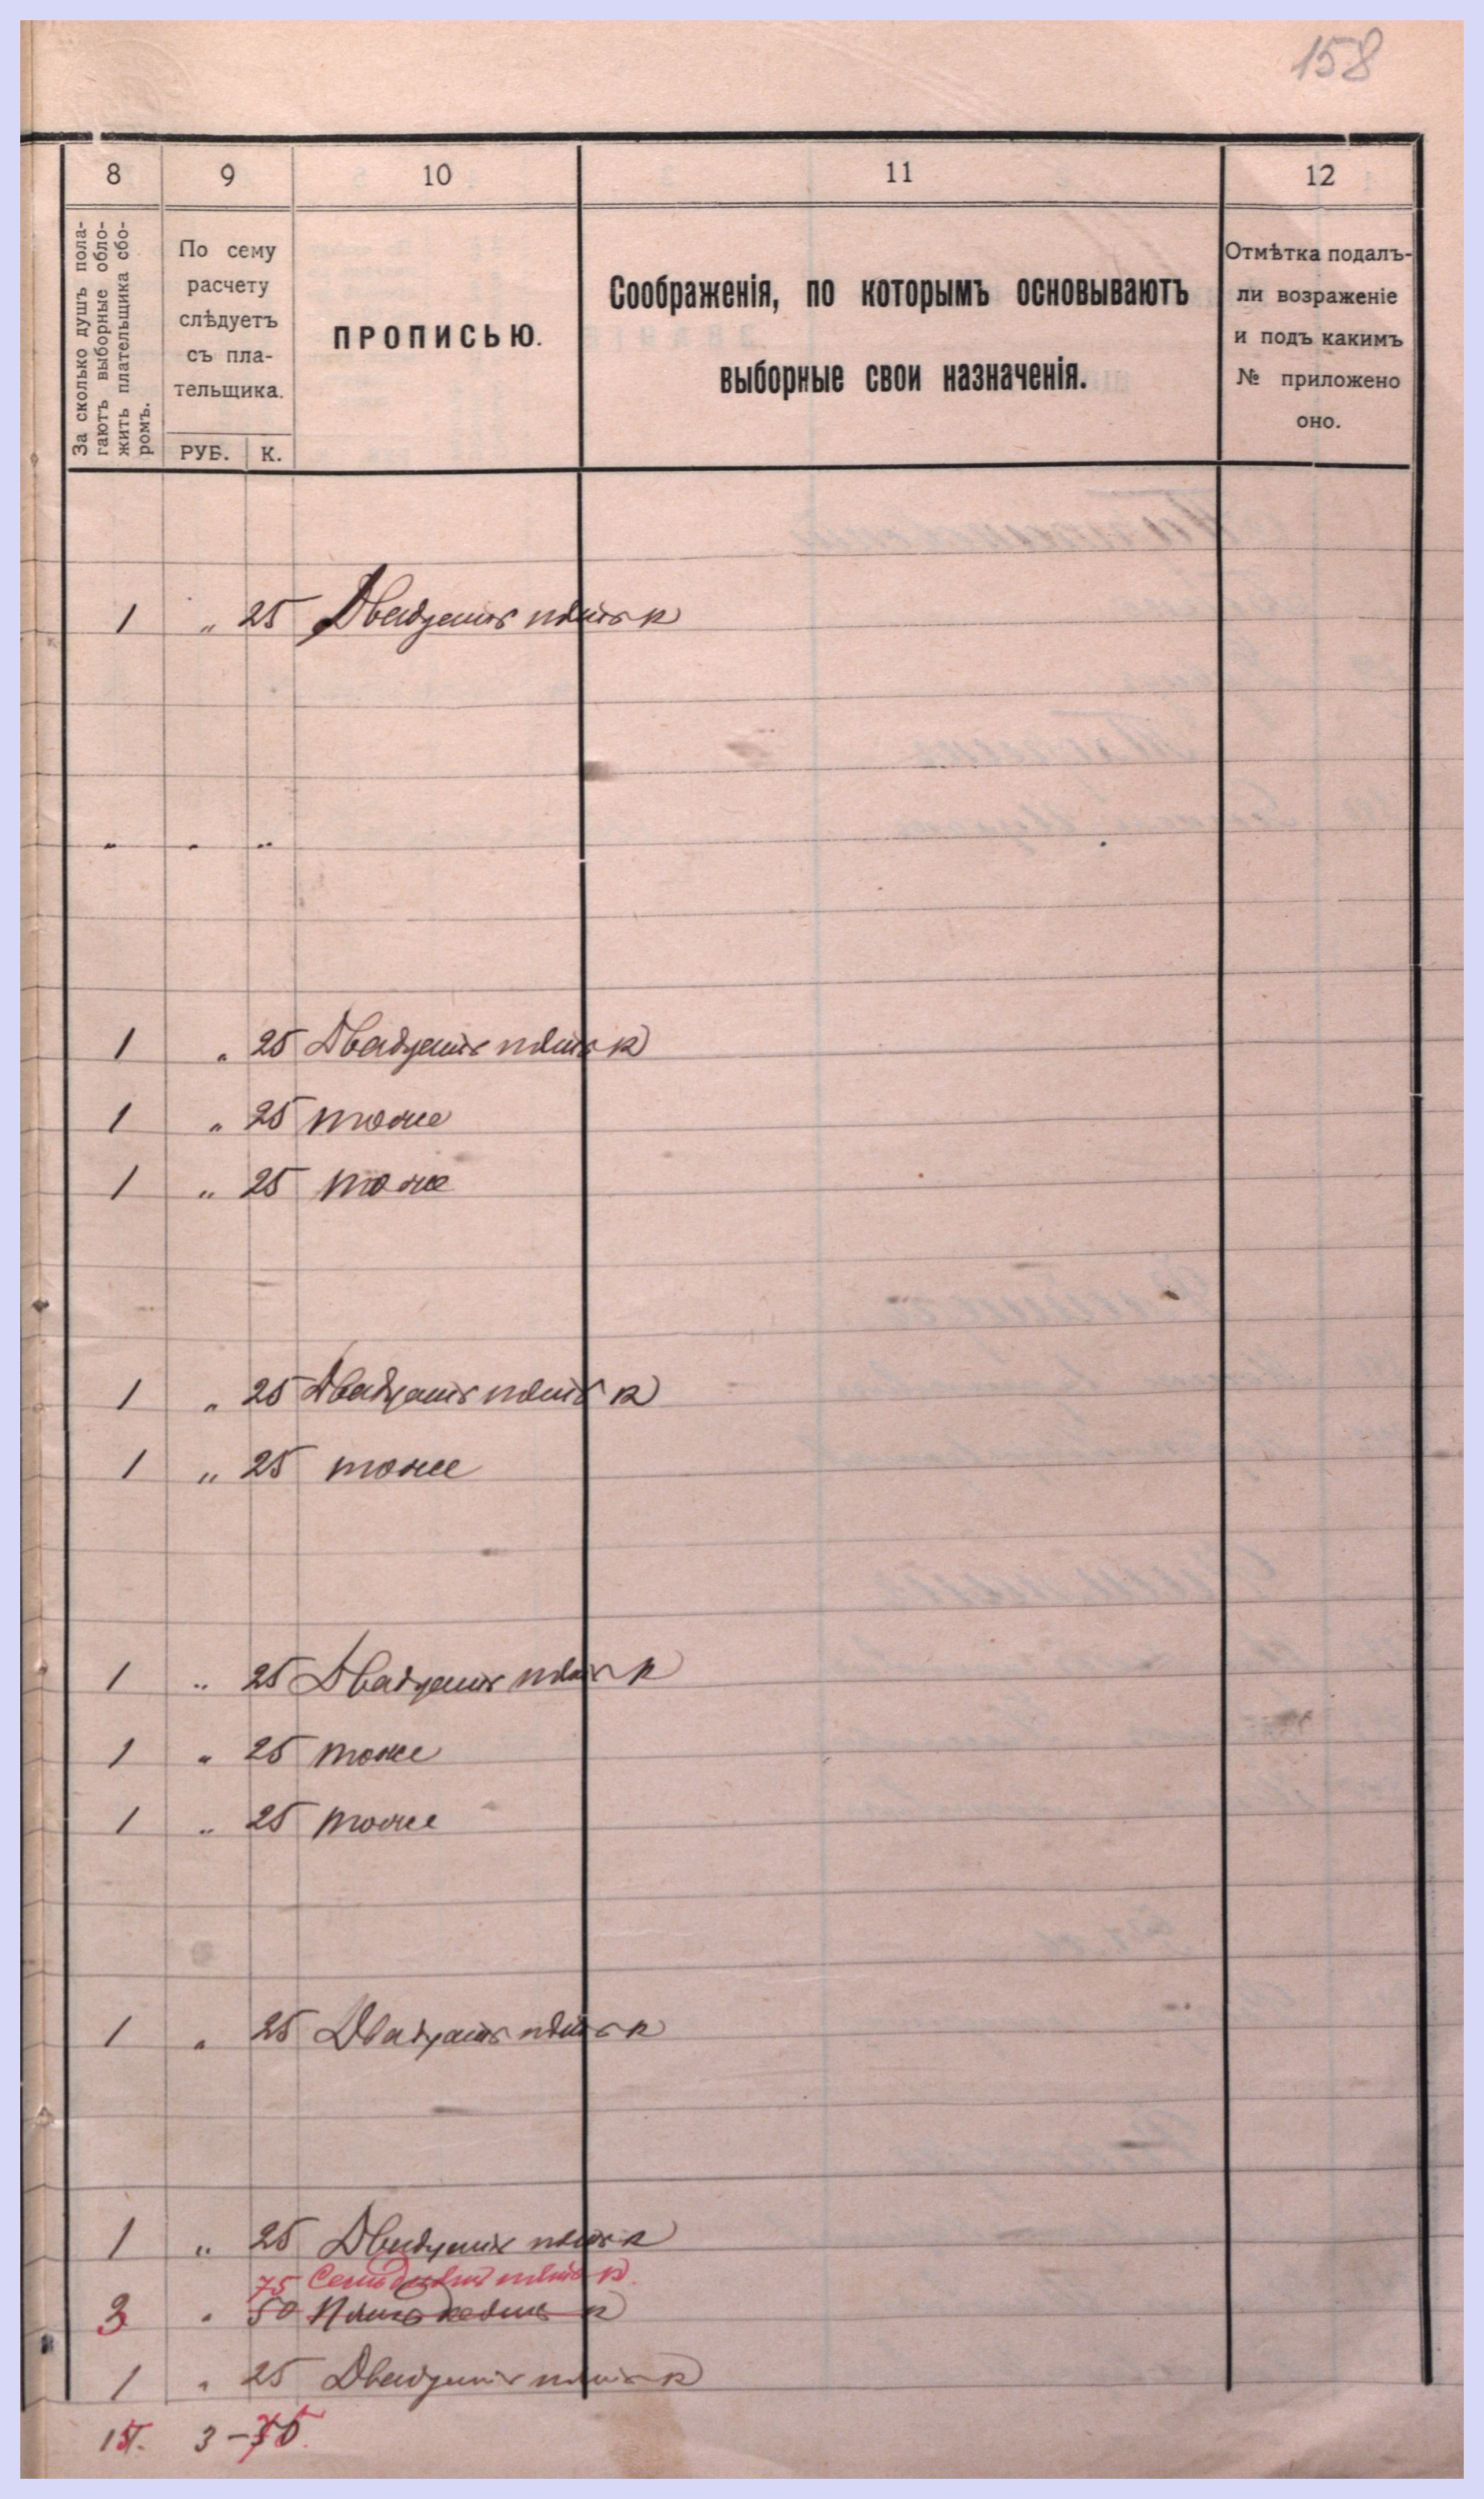 158
8 9 10 11 12
За сколько душъ пола-
гаютъ выборные обло-
жить плательщика сбо-
ромъ.
По сему
расчету
слѣдуетъ
съ пла-
тельщика.
РУБ. К.
ПРОПИСЬЮ.
Соображенія, по которымъ основываютъ
выборные свои назначенія.
Отмѣтка подалъ-
ли возраженіе
и подъ какимъ
№ приложено
оно.
1 „ 25 Двадцать пять к
„ „ „
1 „ 25 Двадцать пять к
1 „ 25 тоже
1 „ 25 тоже
1 „ 25 Двадцать пять к
1 „ 25 тоже
1 „ 25 Двадцать пять к
1 „ 25 тоже
1 „ 25 тоже
1 „ 25 Двадцать пять к
1 „ 25 Двадцать пять к
75 Семьдесят пять к.
3 „ 50 Пятьдесят к
1 „ 25 Двадцать пять к
15. 3-75.